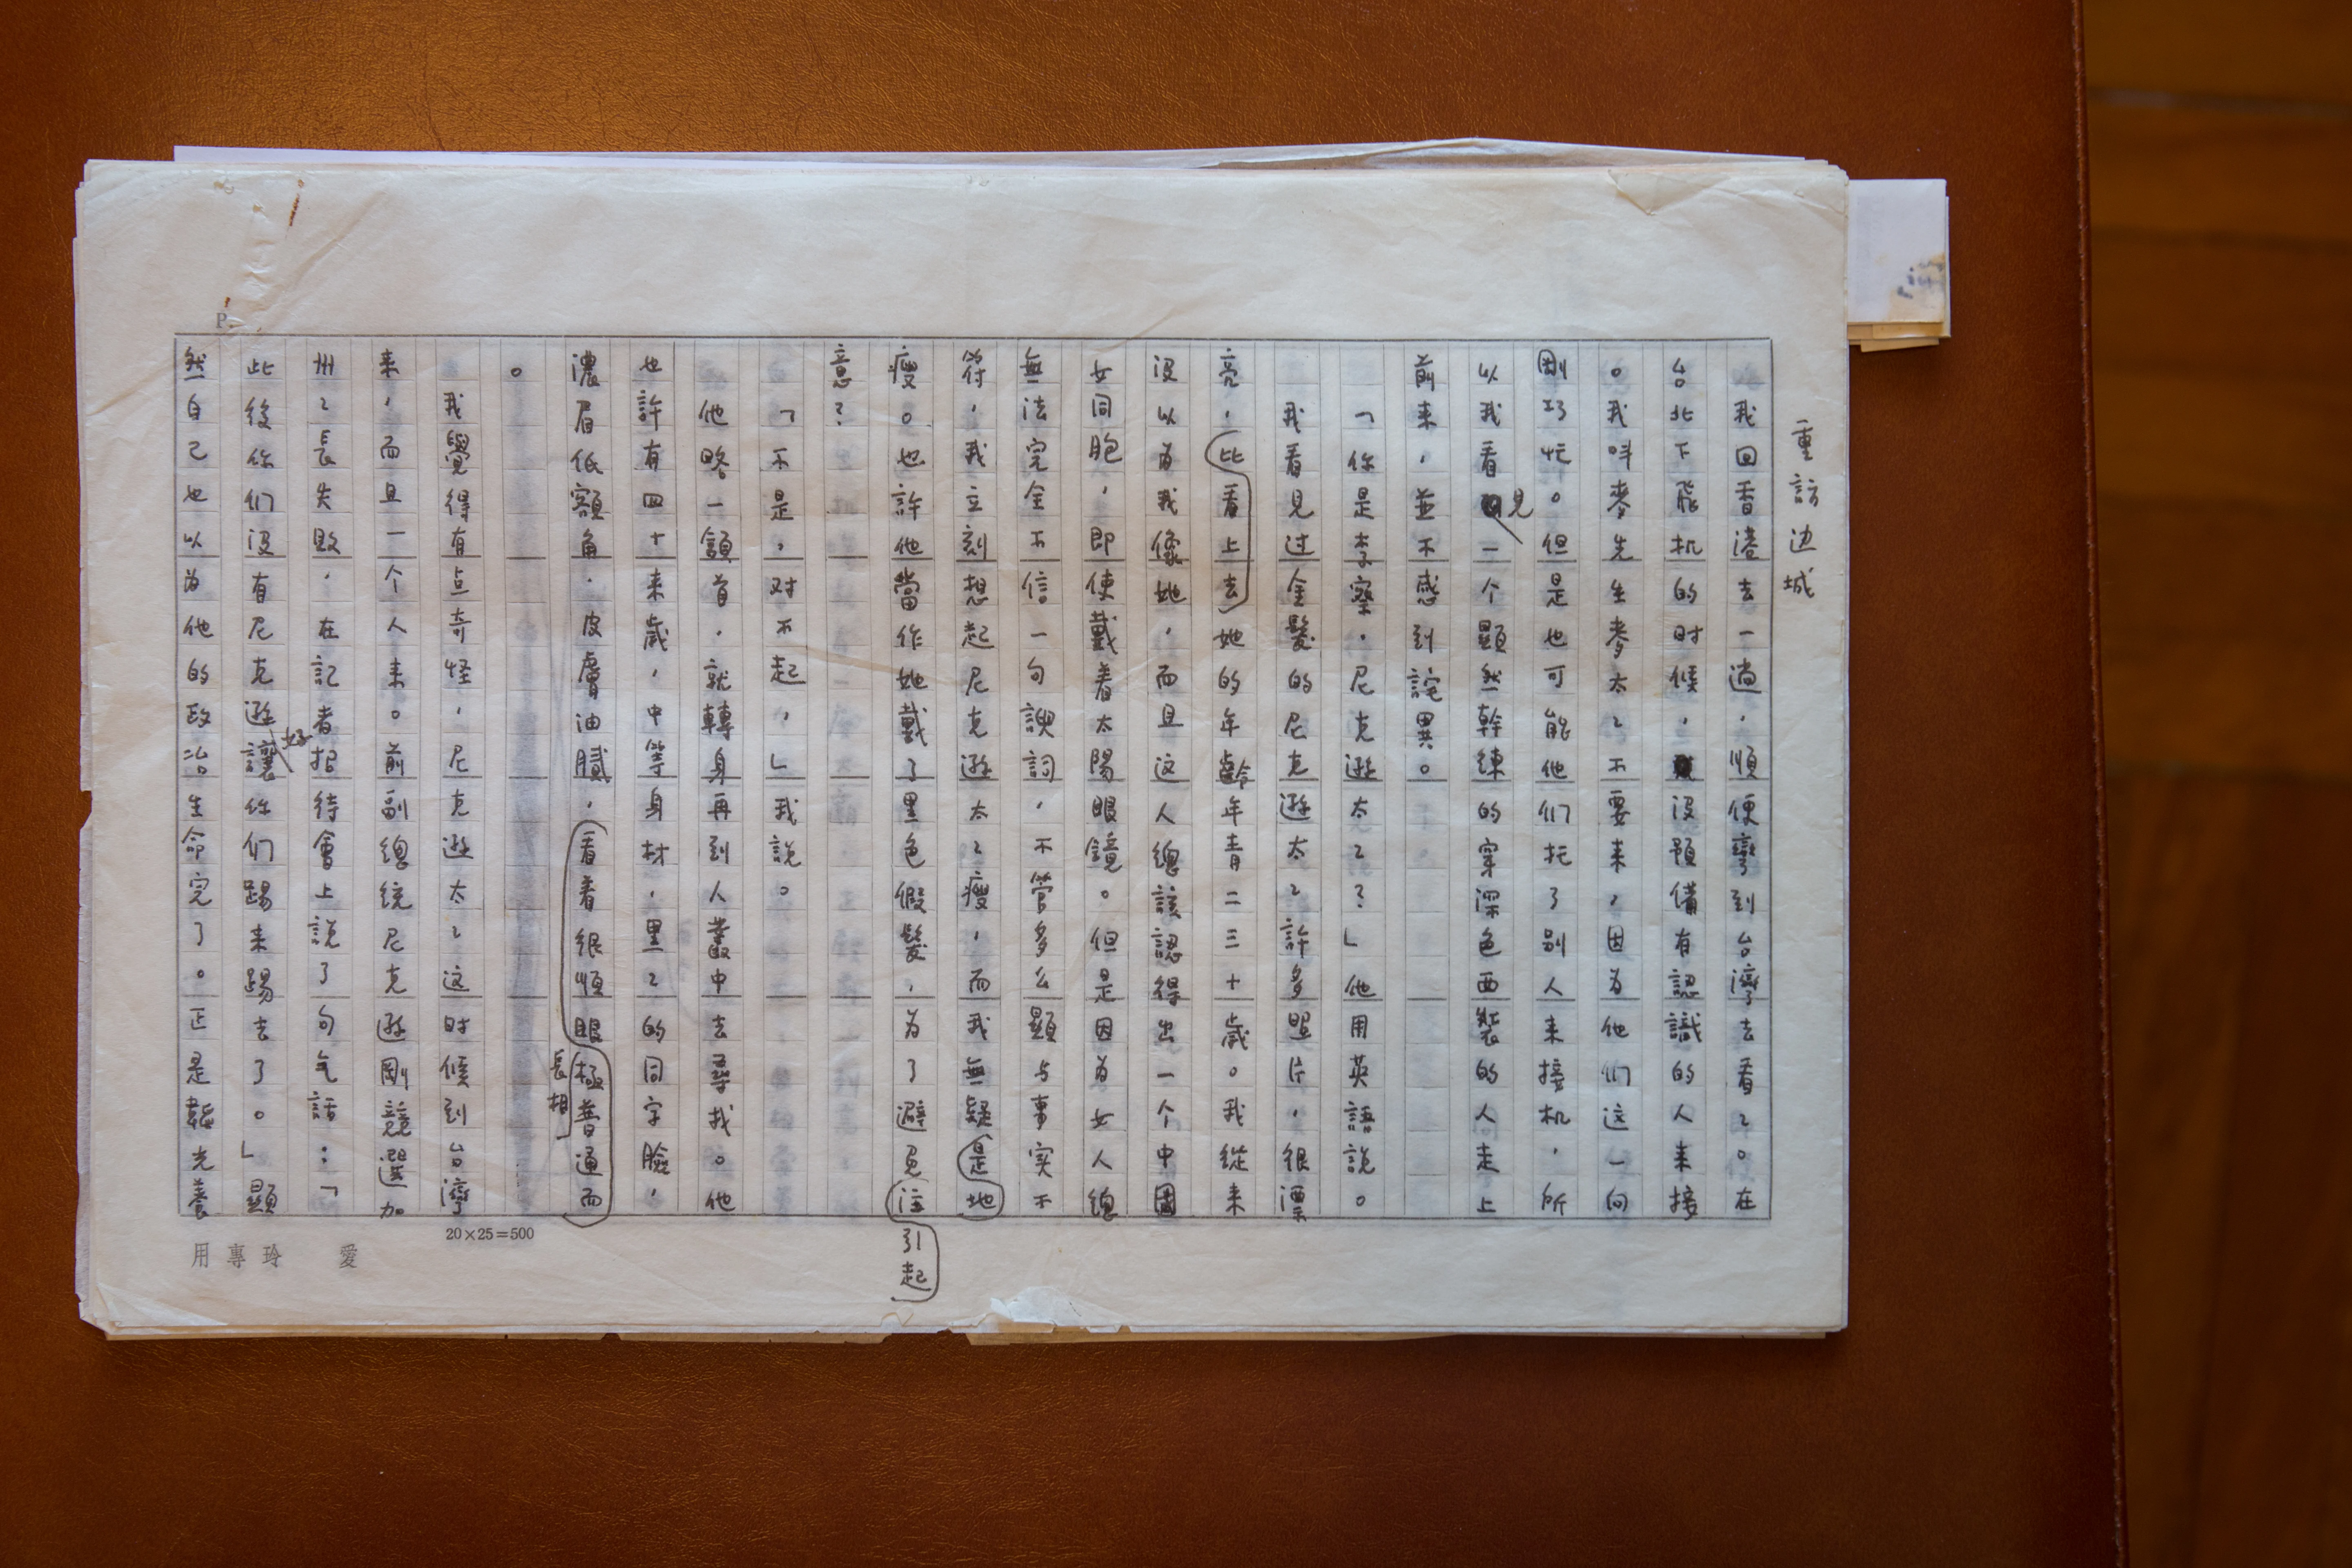 重訪边城
我回香港去一趟，順便彎到台灣去看〻。在
台北下飛机的时候，沒預備有認識的人来接
。我叫麥先生麥太〻不要来，因为他们这一向
剛巧忙。但是也可能他们托了别人来接机，所
以我看見一个顯然幹練的穿深色西裝的人走上
前来，並不感到詫異。
「你是李察．尼克遜太〻？」他用英語說。
我看見过金髮的尼克遜太〻許多照片，很漂
亮，比看上去她的年齡年青二三十歲。我從来
沒以为我像她，而且这人總該認得出一个中國
女同胞，即使戴着太陽眼鏡。但是因为女人總
無法完全不信一句諛詞，不管多么顯与事实不
符，我立刻想起尼克遜太〻瘦，而我無疑是地
瘦。也許他當作她戴了黑色假髮，为了避免注
引起
意？
「不是，对不起，」我說。
他略一頷首，就轉身再到人叢中去尋找。他
也許有四十来歲，中等身材，黑〻的同字臉，
濃眉低額角，皮膚油膩，看着很順眼極普通而
長相
。
我覺得有点奇怪，尼克遜太〻这时候到台灣
来，而且一个人来。前副總統尼克遜剛競選加
州〻長失敗，在記者招待會上說了句气話：「
此後你们沒有尼克遜讓你们踢来踢去了。」顯
好
然自己也以为他的政治生命完了。正是韜光養
P.
20×25=500
愛玲專用